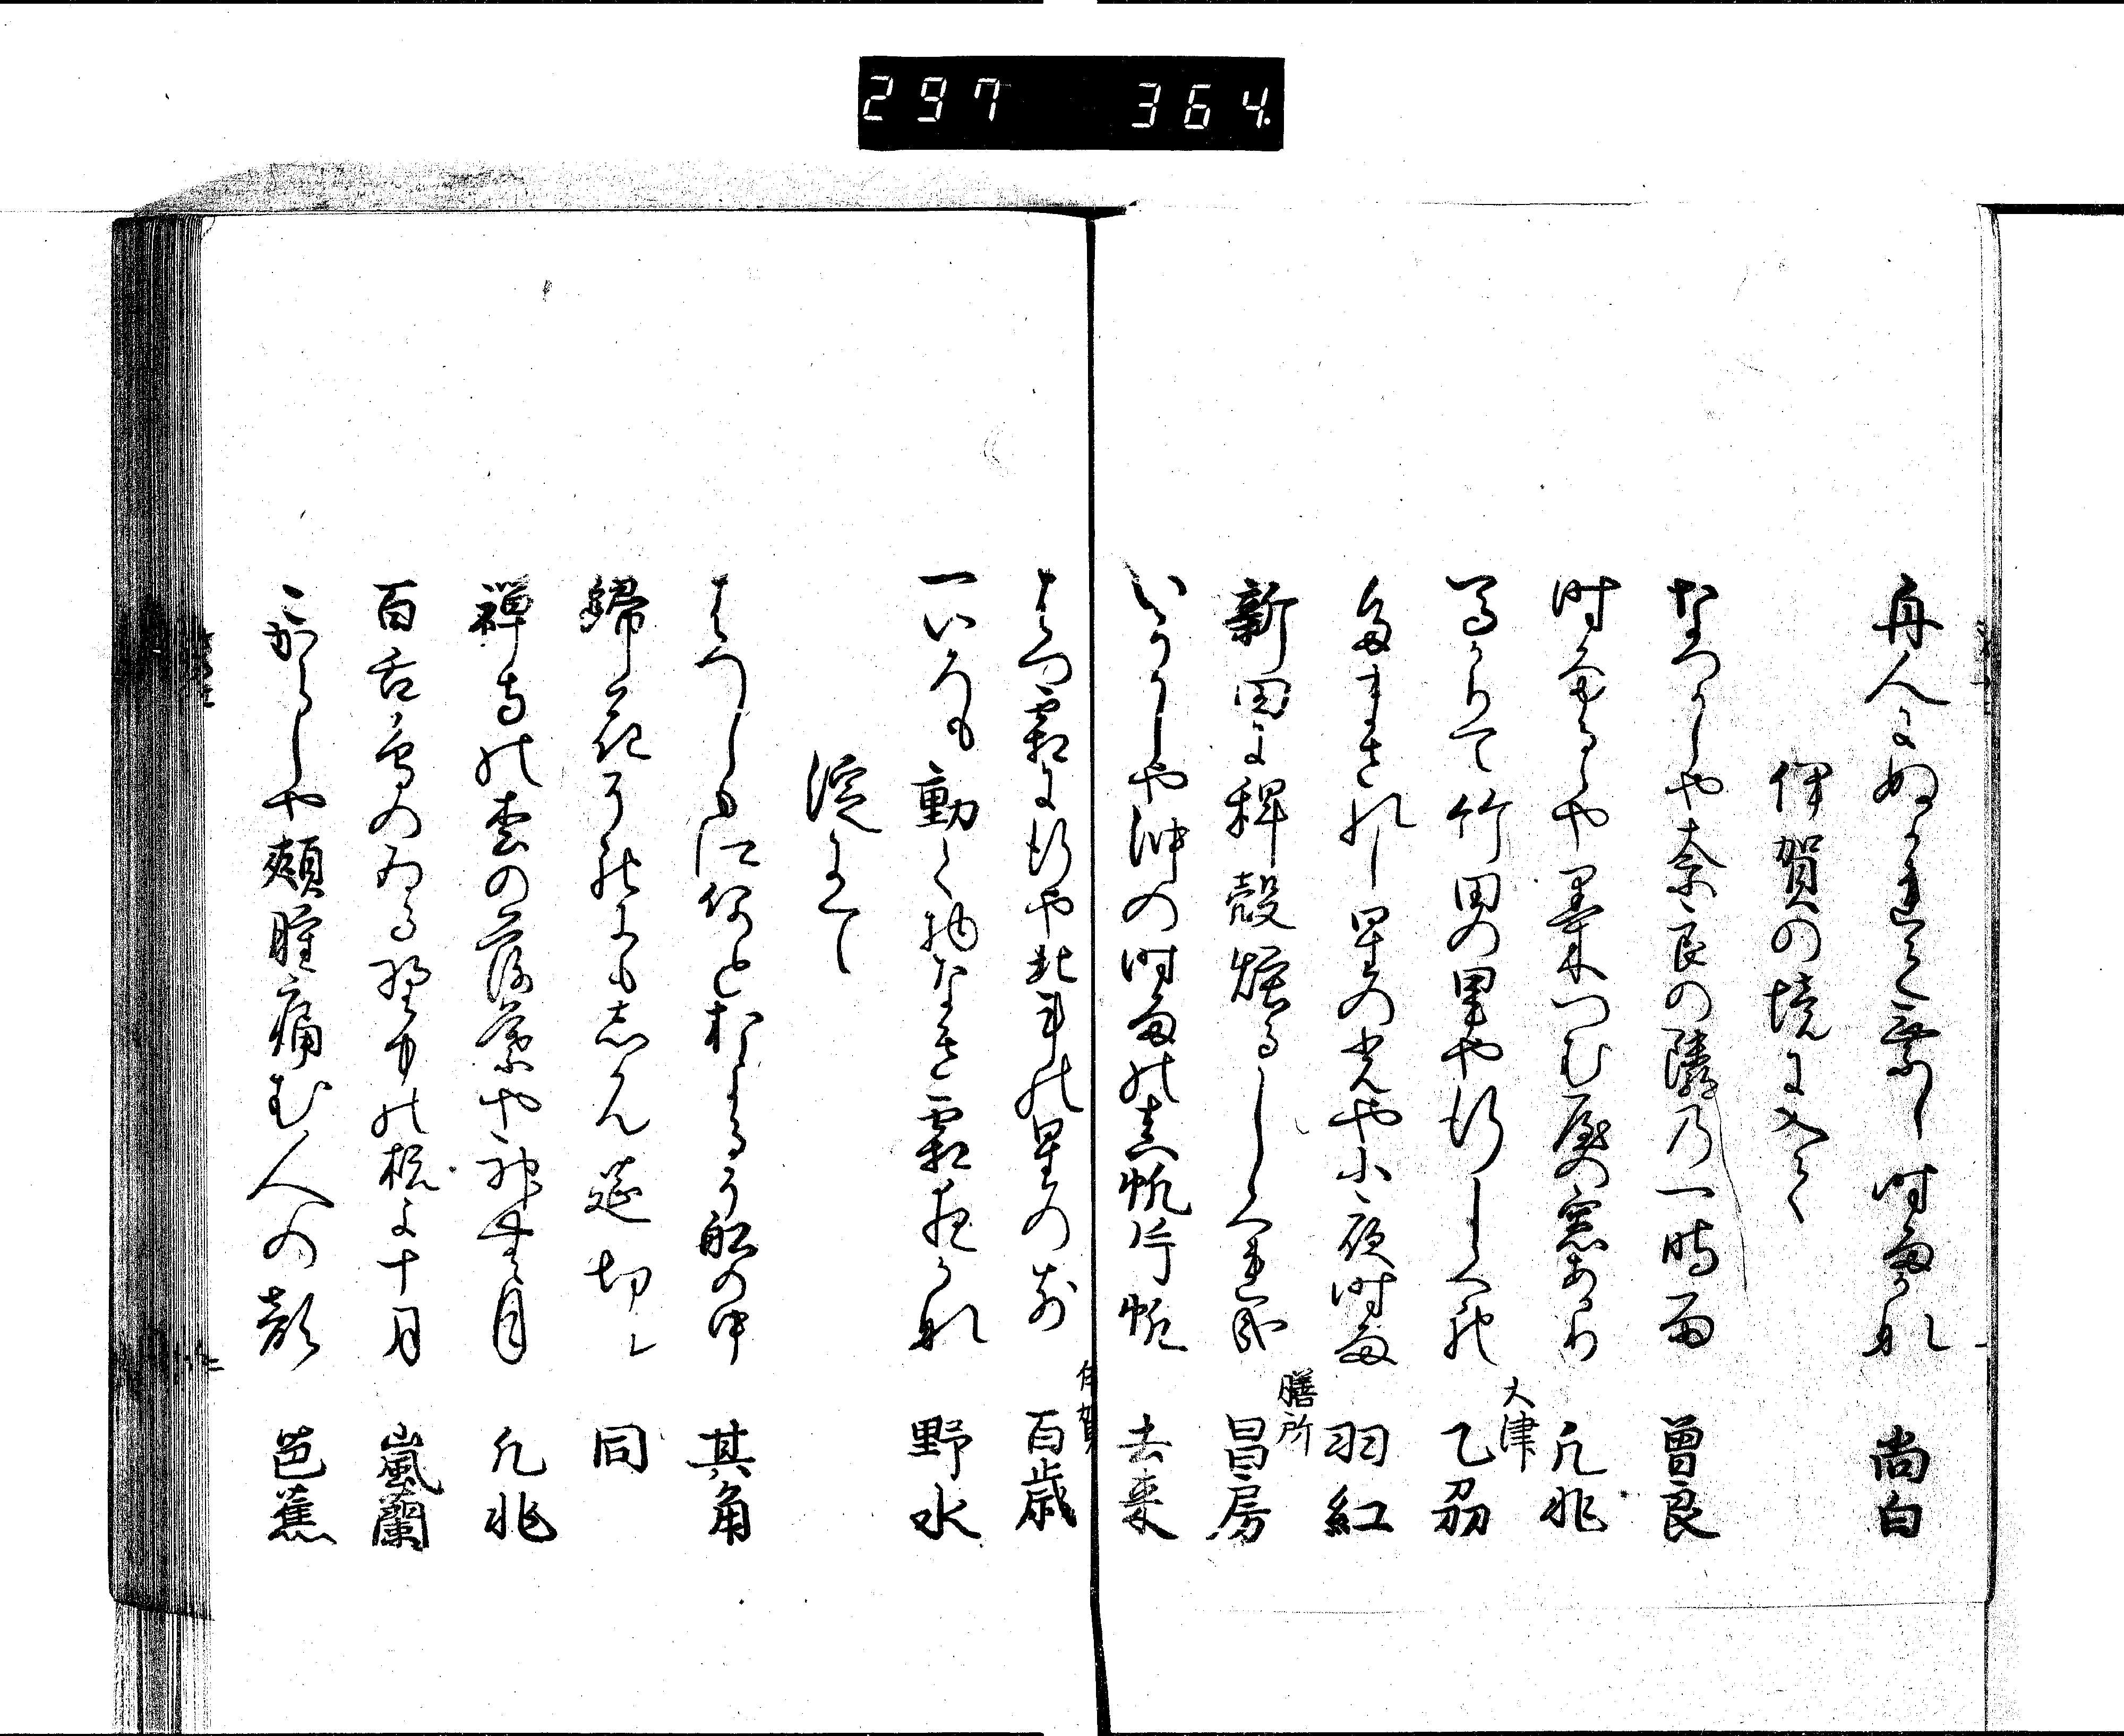 297 364
舟人にぬかれて乗し時雨かな 尚白
伊賀の境に入て
なつかしや奈良の隣の一時雨 曽良
時雨るゝや黒木つむ屋の窓あかり 凡兆
馬かりて竹田の里や行しくれ 大津 乙刕
たまされし星の光や小夜時雨 羽紅
新田に稗殻煙るしくれ哉 膳所 昌房
いそかしや沖の時雨の真帆片帆 去来
はつ霜に行や北斗の星の前 伊賀 百歳
一いろも動く物なき霜夜かな 野水
淀にて
はつしもに何とおよるそ船の中 其角
帰花それにもしかん莚切レ 同
禅寺の松の落葉や神無月 凡兆
百舌鳥のゐる野中の杭よ十月 嵐蘭
こからしや頬腫痛む人の顔 芭蕉